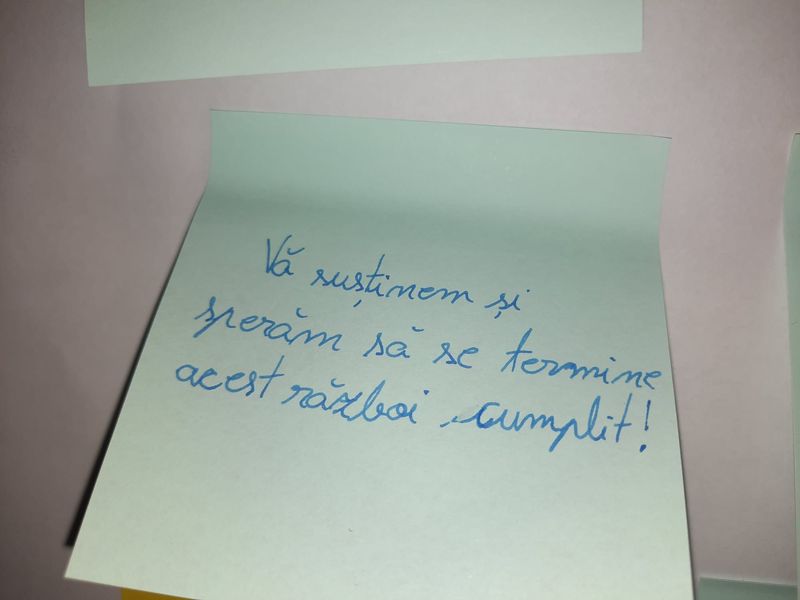 Vă susținem și
sperăm să se termine
acest război cumplit!